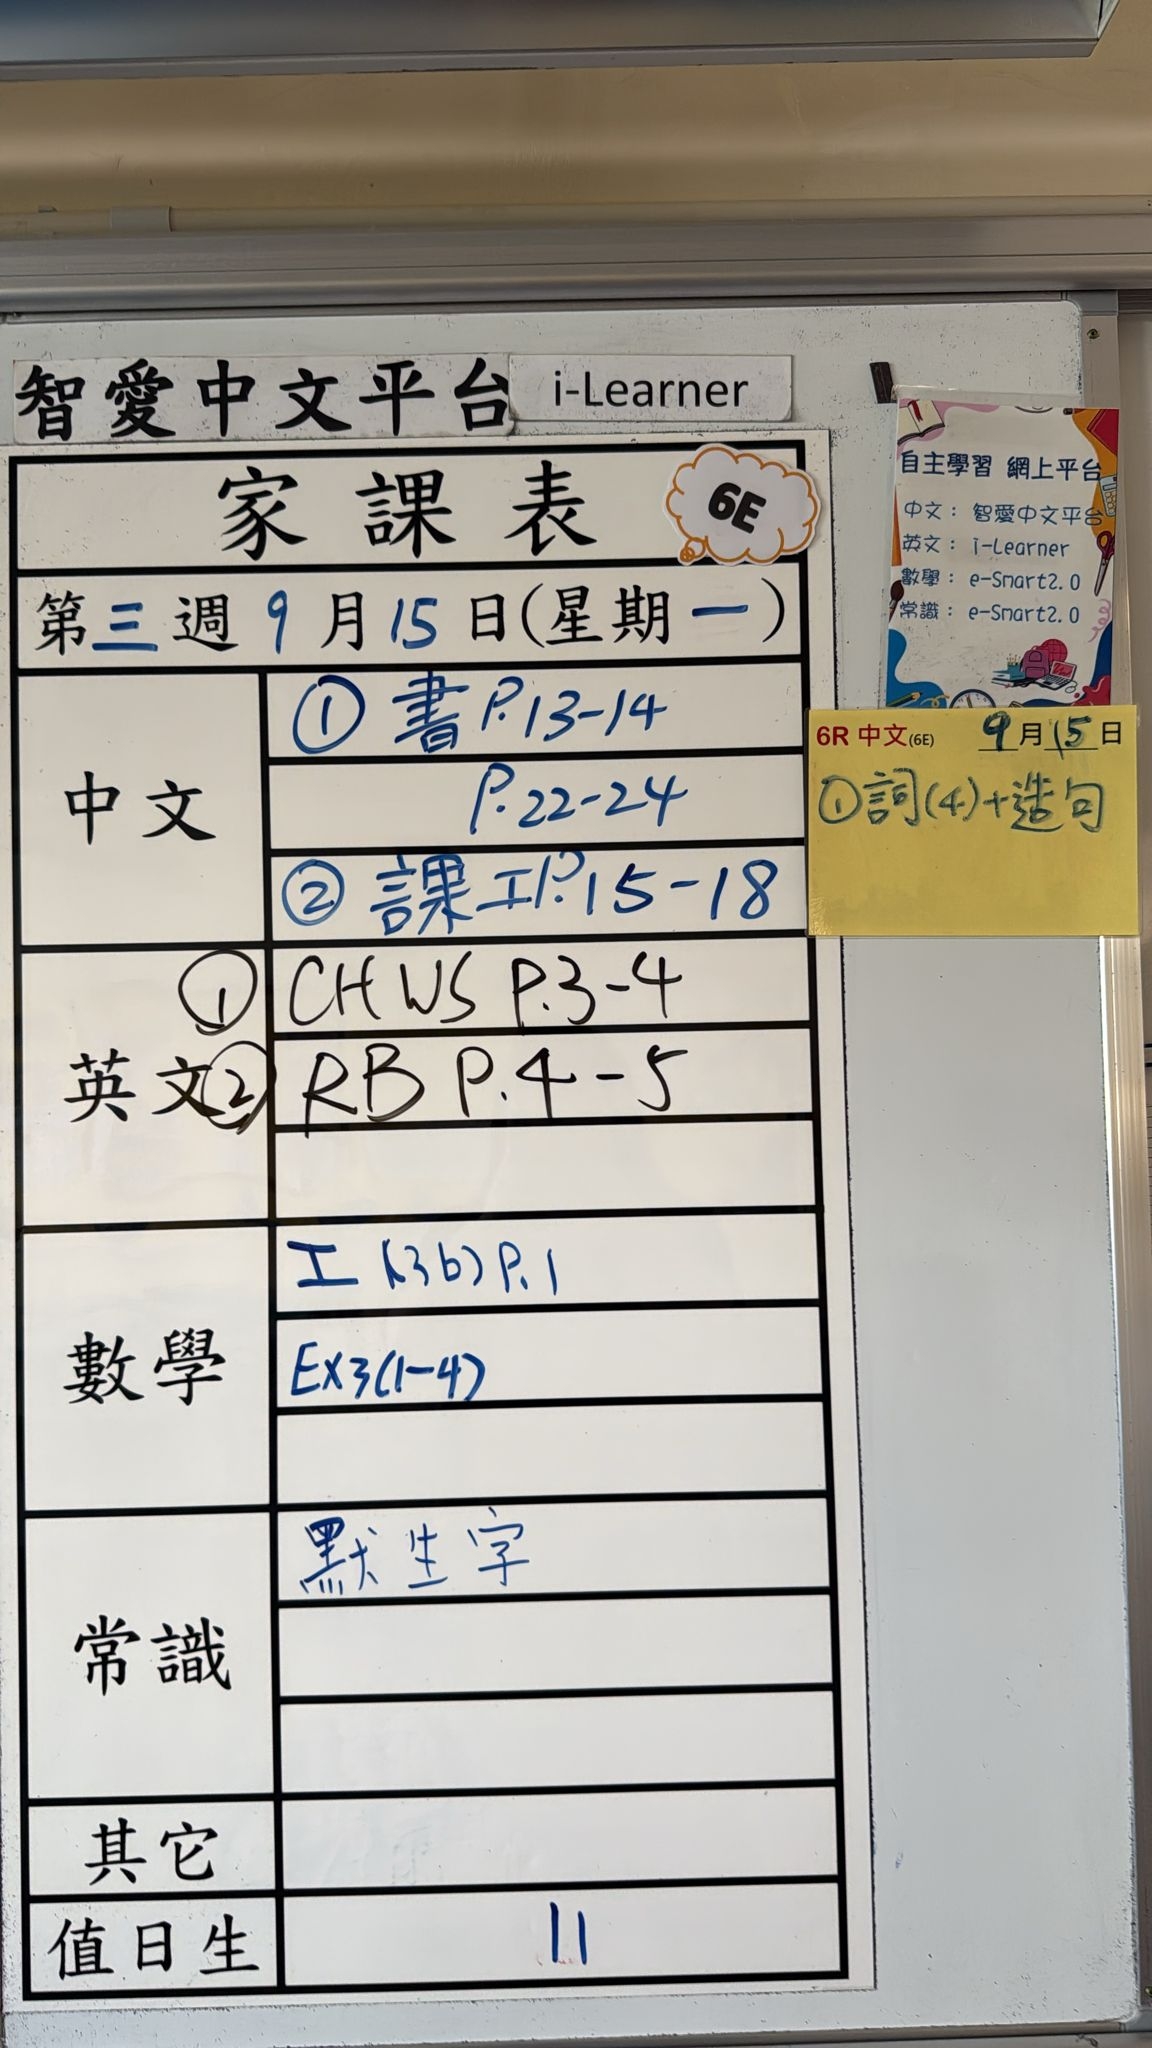 智愛中文平台 i-Learner
家課表 6E
第三週9月15日(星期一)
中文
① 書P.13-14
P.22-24
② 課工P.15-18
英文
① CHWS P.3-4
② RB P.4-5
數學
工(3b)P.1
Ex3(1-4)
常識
默生字
其它
值日生
11
自主學習 網上平台
中文：智愛中文平台
英文：i-Learner
數學：e-Smart2.0
常識：e-Smart2.0
6R 中文(6E) 9月15日
①詞(4)+造句